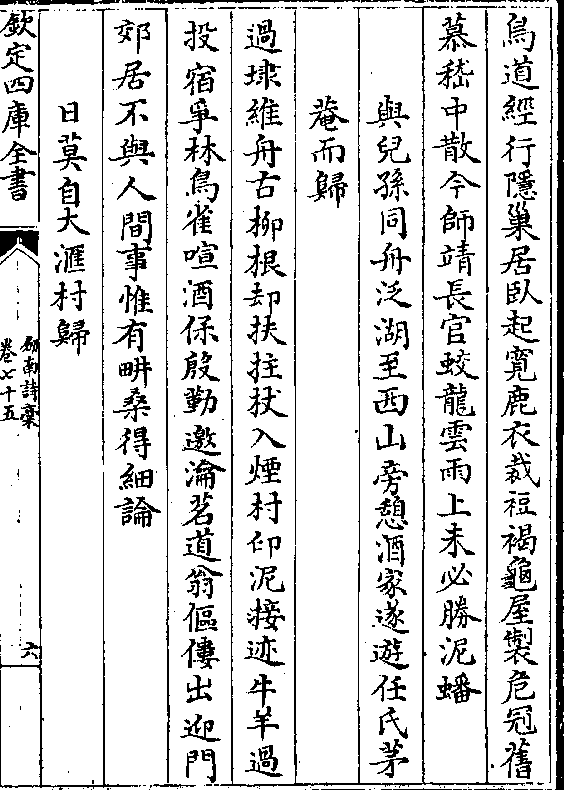 鳥道經行隱巢居臥起寛鹿衣裁裋褐龜屋製危冠舊
慕嵇中散今師靖長官蛟龍雲雨上未必勝泥蟠
與兒孫同舟泛湖至西山旁憩酒家遂遊任氏茅
菴而歸
過埭維舟古柳根却扶拄杖入煙村印泥接迹牛羊過
投宿爭林鳥雀喧酒保殷勤邀瀹茗道翁傴僂出迎門
郊居不與人間事惟有畊桑得細論
日莫自大滙村歸
欽定四庫全書
劍南詩槀
卷七十五
六